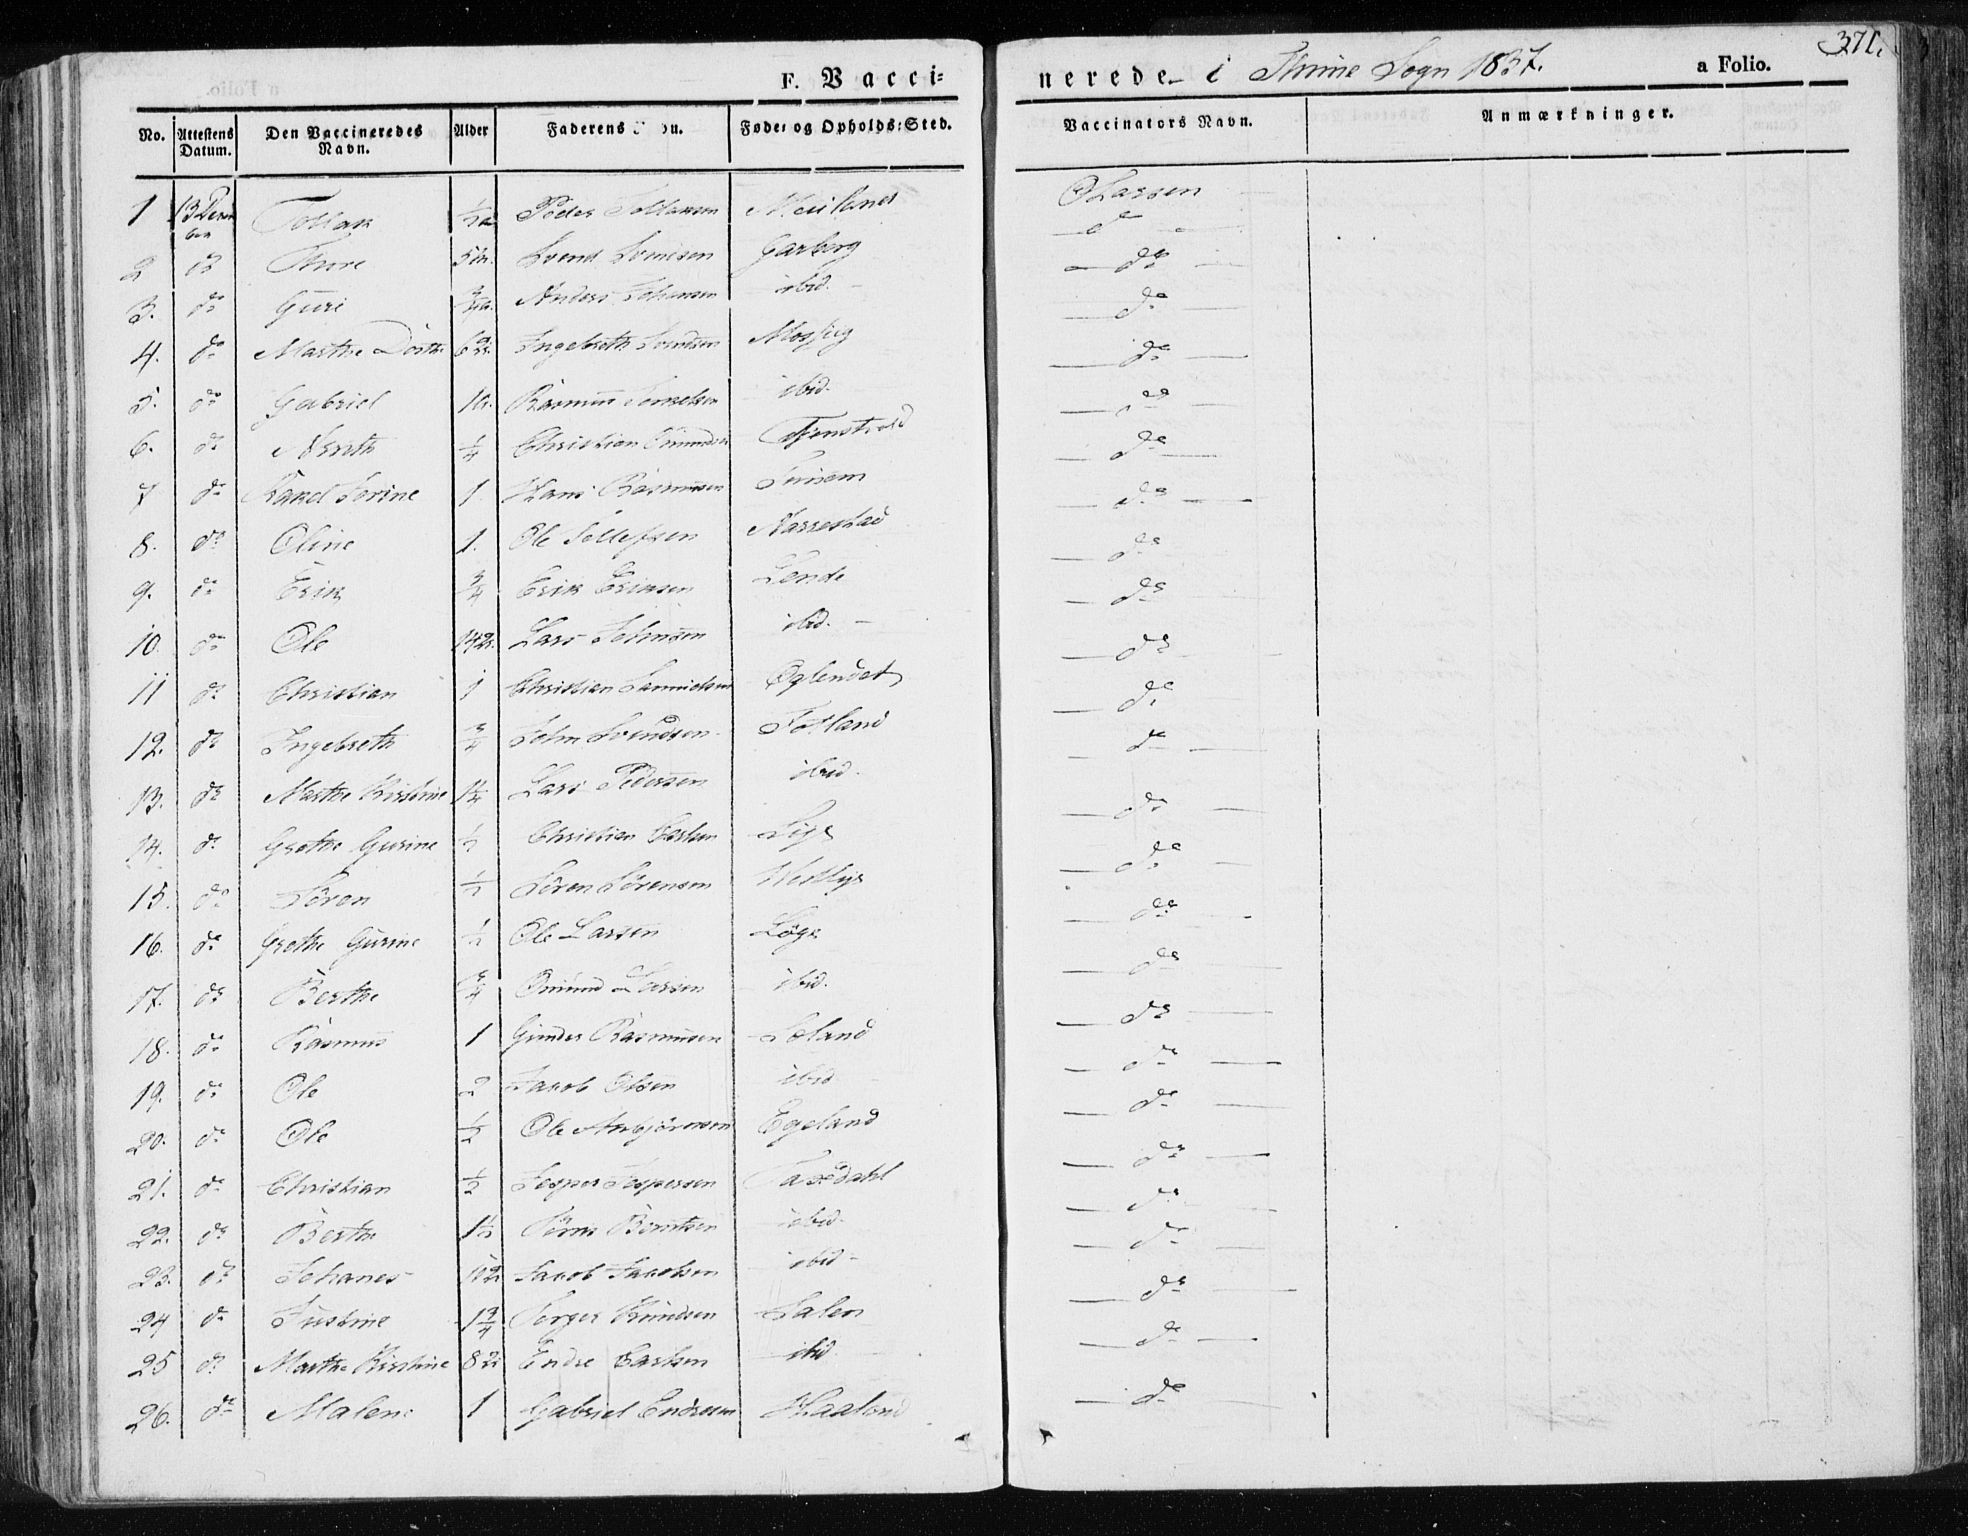 371.
F. Vacci=
nerede i Thime Sogn 1837. a Folio.
No. Attestens Datum. Den Vaccineredes Navn. Alder Faderens Føde: og Opholds:Sted. Vaccinators Navn. Anmærkninger.
1 13 Decem ber Tollak ½ Peder Tollaksen OLarsen
2 do Thore Svend Svendsen Garborg do
3. do Guri Anders Johansen ibid. do
4. do Marthe Dorthe Ingebreth Svendsen do
5. do Gabriel Rasmus ibid. do
6. do Christian do
7 do Rakel Serine 1. Hans Rasmussen do
8. do Oline 1. Ole Tollefsen Narrestad do
9. do Erik ¾ Erik Eriksen Lende do
10. do Ole Lars ibid. do
11 do Christian 1 Christian Samuelsen Øglendet do
12. do Ingebreth ¾ John Svendsen Fotland do
13. do Marthe Kirstine 1¼ Lars Pedersen ibid. do
14. do Grethe Gurine ½ Christian Lye do
15. do Søren ½ Søren Sørensen Westlye do
16. do Grethe Gurine ½ Ole Larsen Løge do
17. do Berthe ¾ Omund Larsen ibid. do
18. do Rasmus 1 Gunder Rasmussen do
19. do Ole 2 Jacob Olsen ibid do
20. do Ole ½ Ole Asbjörnsen Egeland do
21. do Christian ½ Jesper Jespersen Taxedahl do
22. do Berthe 1½ Berntsen ibid. do
23. do Johanes Jacob Jacobsen ibid do
24 do Justine 1¾ Torger Knudsen do
25 do Marthe Kirstine Endre ibid do
26. do Malene 1 Gabriel Endresen Haaland do